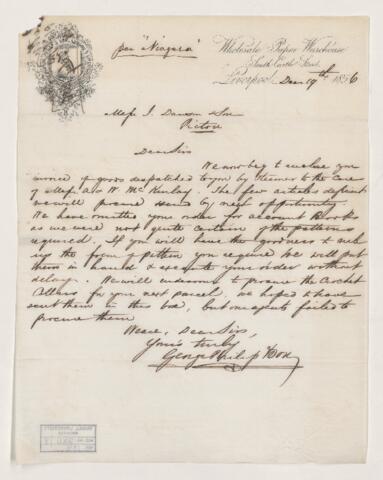 per "Niagara"
Wholesale Paper Warehouse
South Castle Street
Liverpool Decr 19th 1856
Messrs J. Dawson & Son
Pictou
Dear Sirs
We now beg to enclose you
invoice of goods despatched to you by Steamer to the care
of Messrs A & W. McKinlay. The few articles deficient
we will procure & send by next opportunity.
We have omitted your order for account Books
as we were not quite certain of the patterns
required. If you will have the goodness to
up the form of pattern you require we will put
them in hand & execute your order without
delay. We will endeavour to procure the Crochet
for your next parcel, we hoped to have
sent them in this box, but our agents failed to
procure them
We are, Dear Sirs,
Yours truly
George Philip & Son